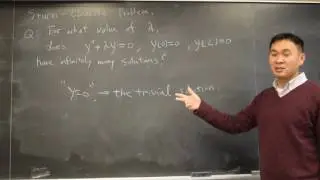 Sturm-Liouville Problem,
Q: For what value of λ,
does y"+λy=0, y(0)=0, y(L)=0
have infinitely many solutions?
"y=0", → the trivial